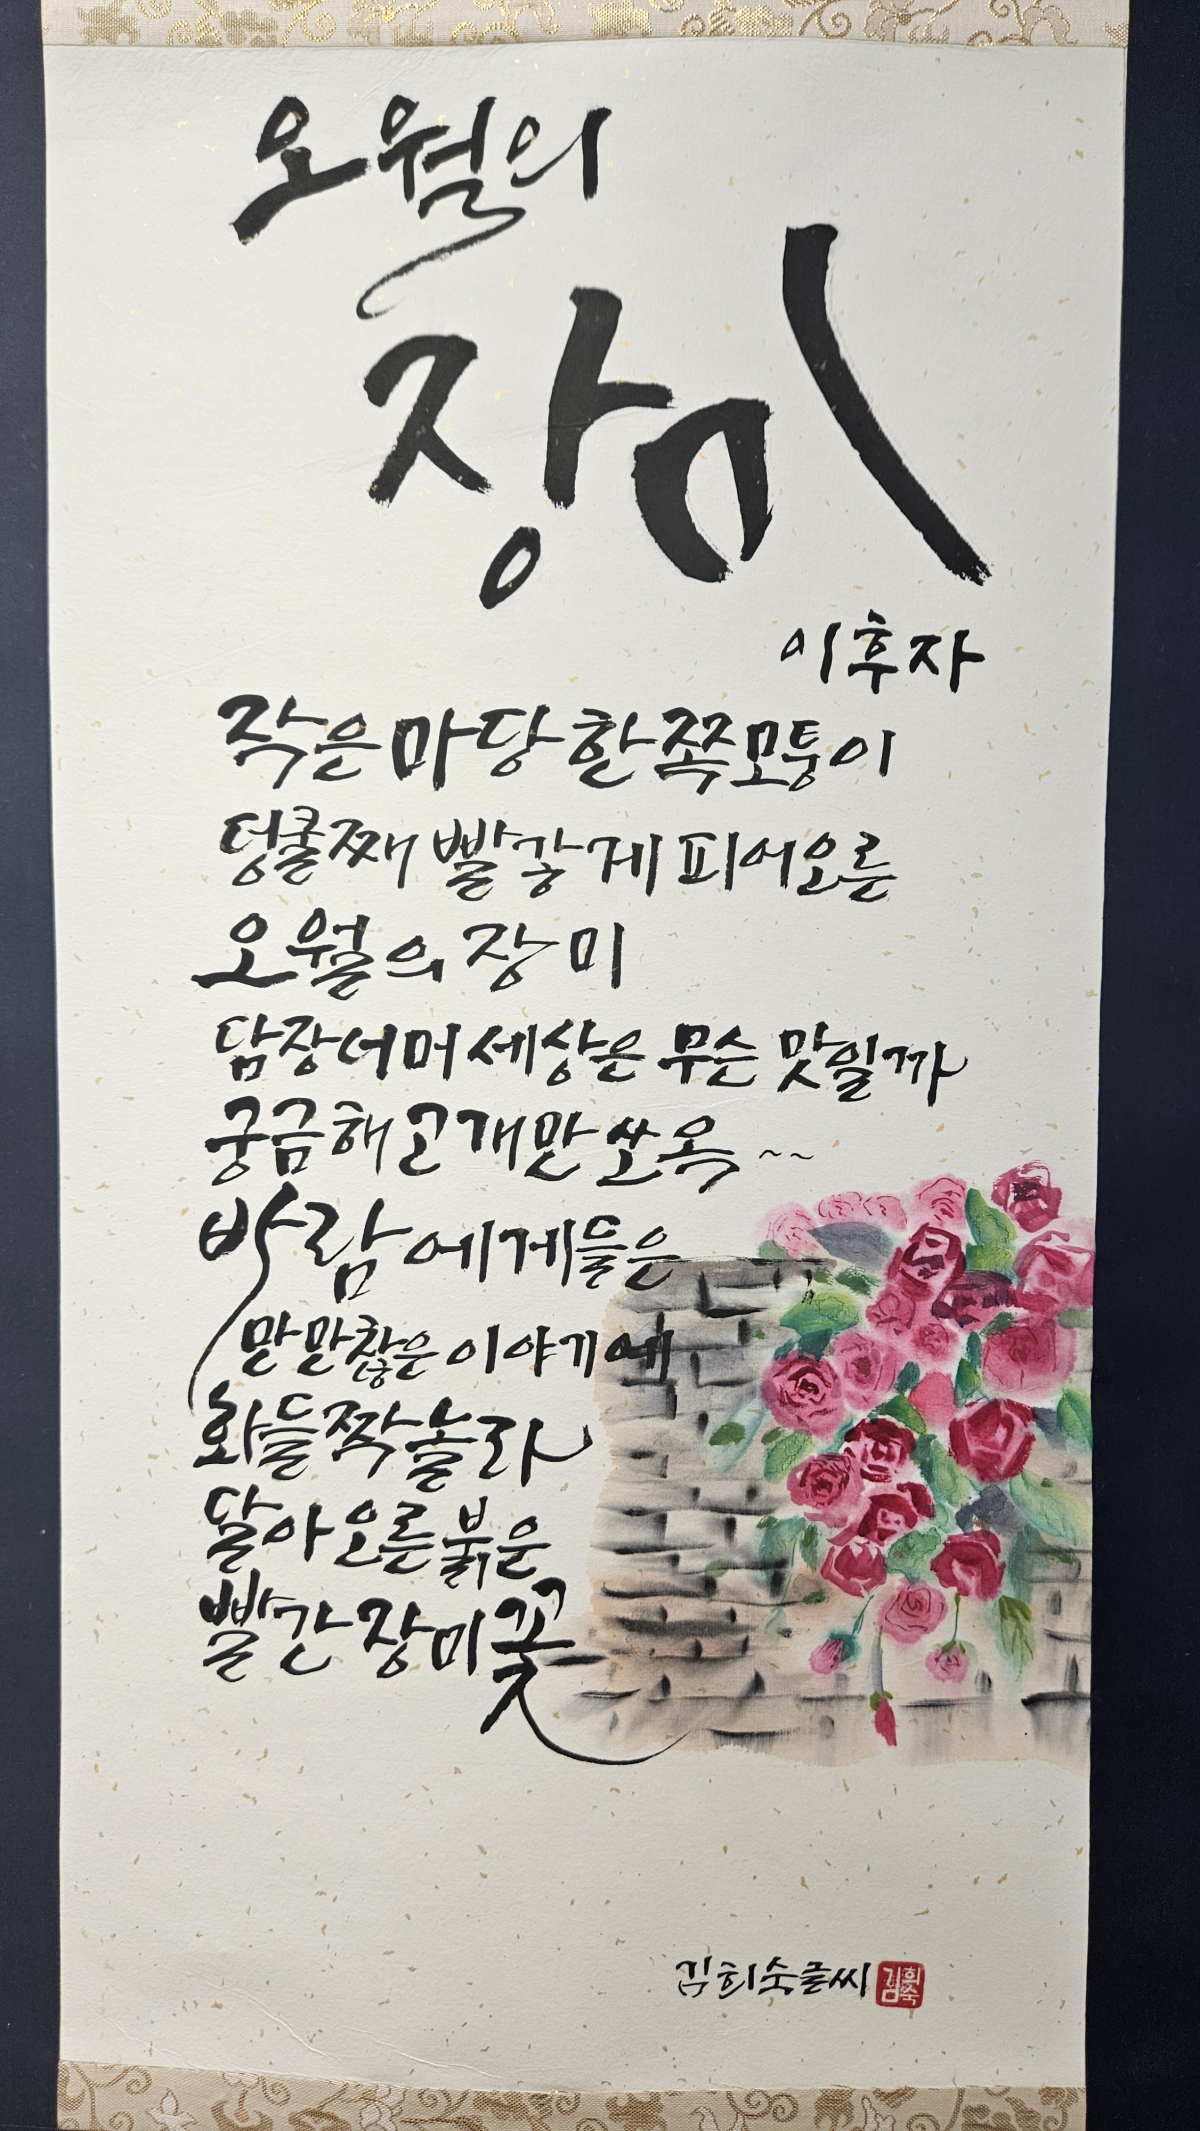 오월의
장미
이후자
작은 마당 한 쪽 모퉁이
덩쿨째 빨갛게 피어오른
오월의 장미
담장 너머 세상은 무슨 맛일까
궁금해 고개만 쏘옥~~
바람에게 들은
만만찮은 이야기에
화들짝 놀라
달아오른 붉은
빨간 장미꽃
김희숙 글씨
김희숙